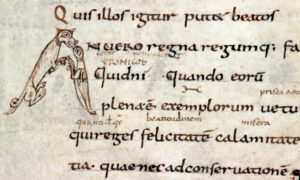 Quis illos igitur putet beatos
A nuero regna regumq; fa
yronicos
Quidni quando eorū
plena ē exemplorum uetu
beatitudinem misera
qui reges felicitatē calamitate
tia quae nec ad conseruationē